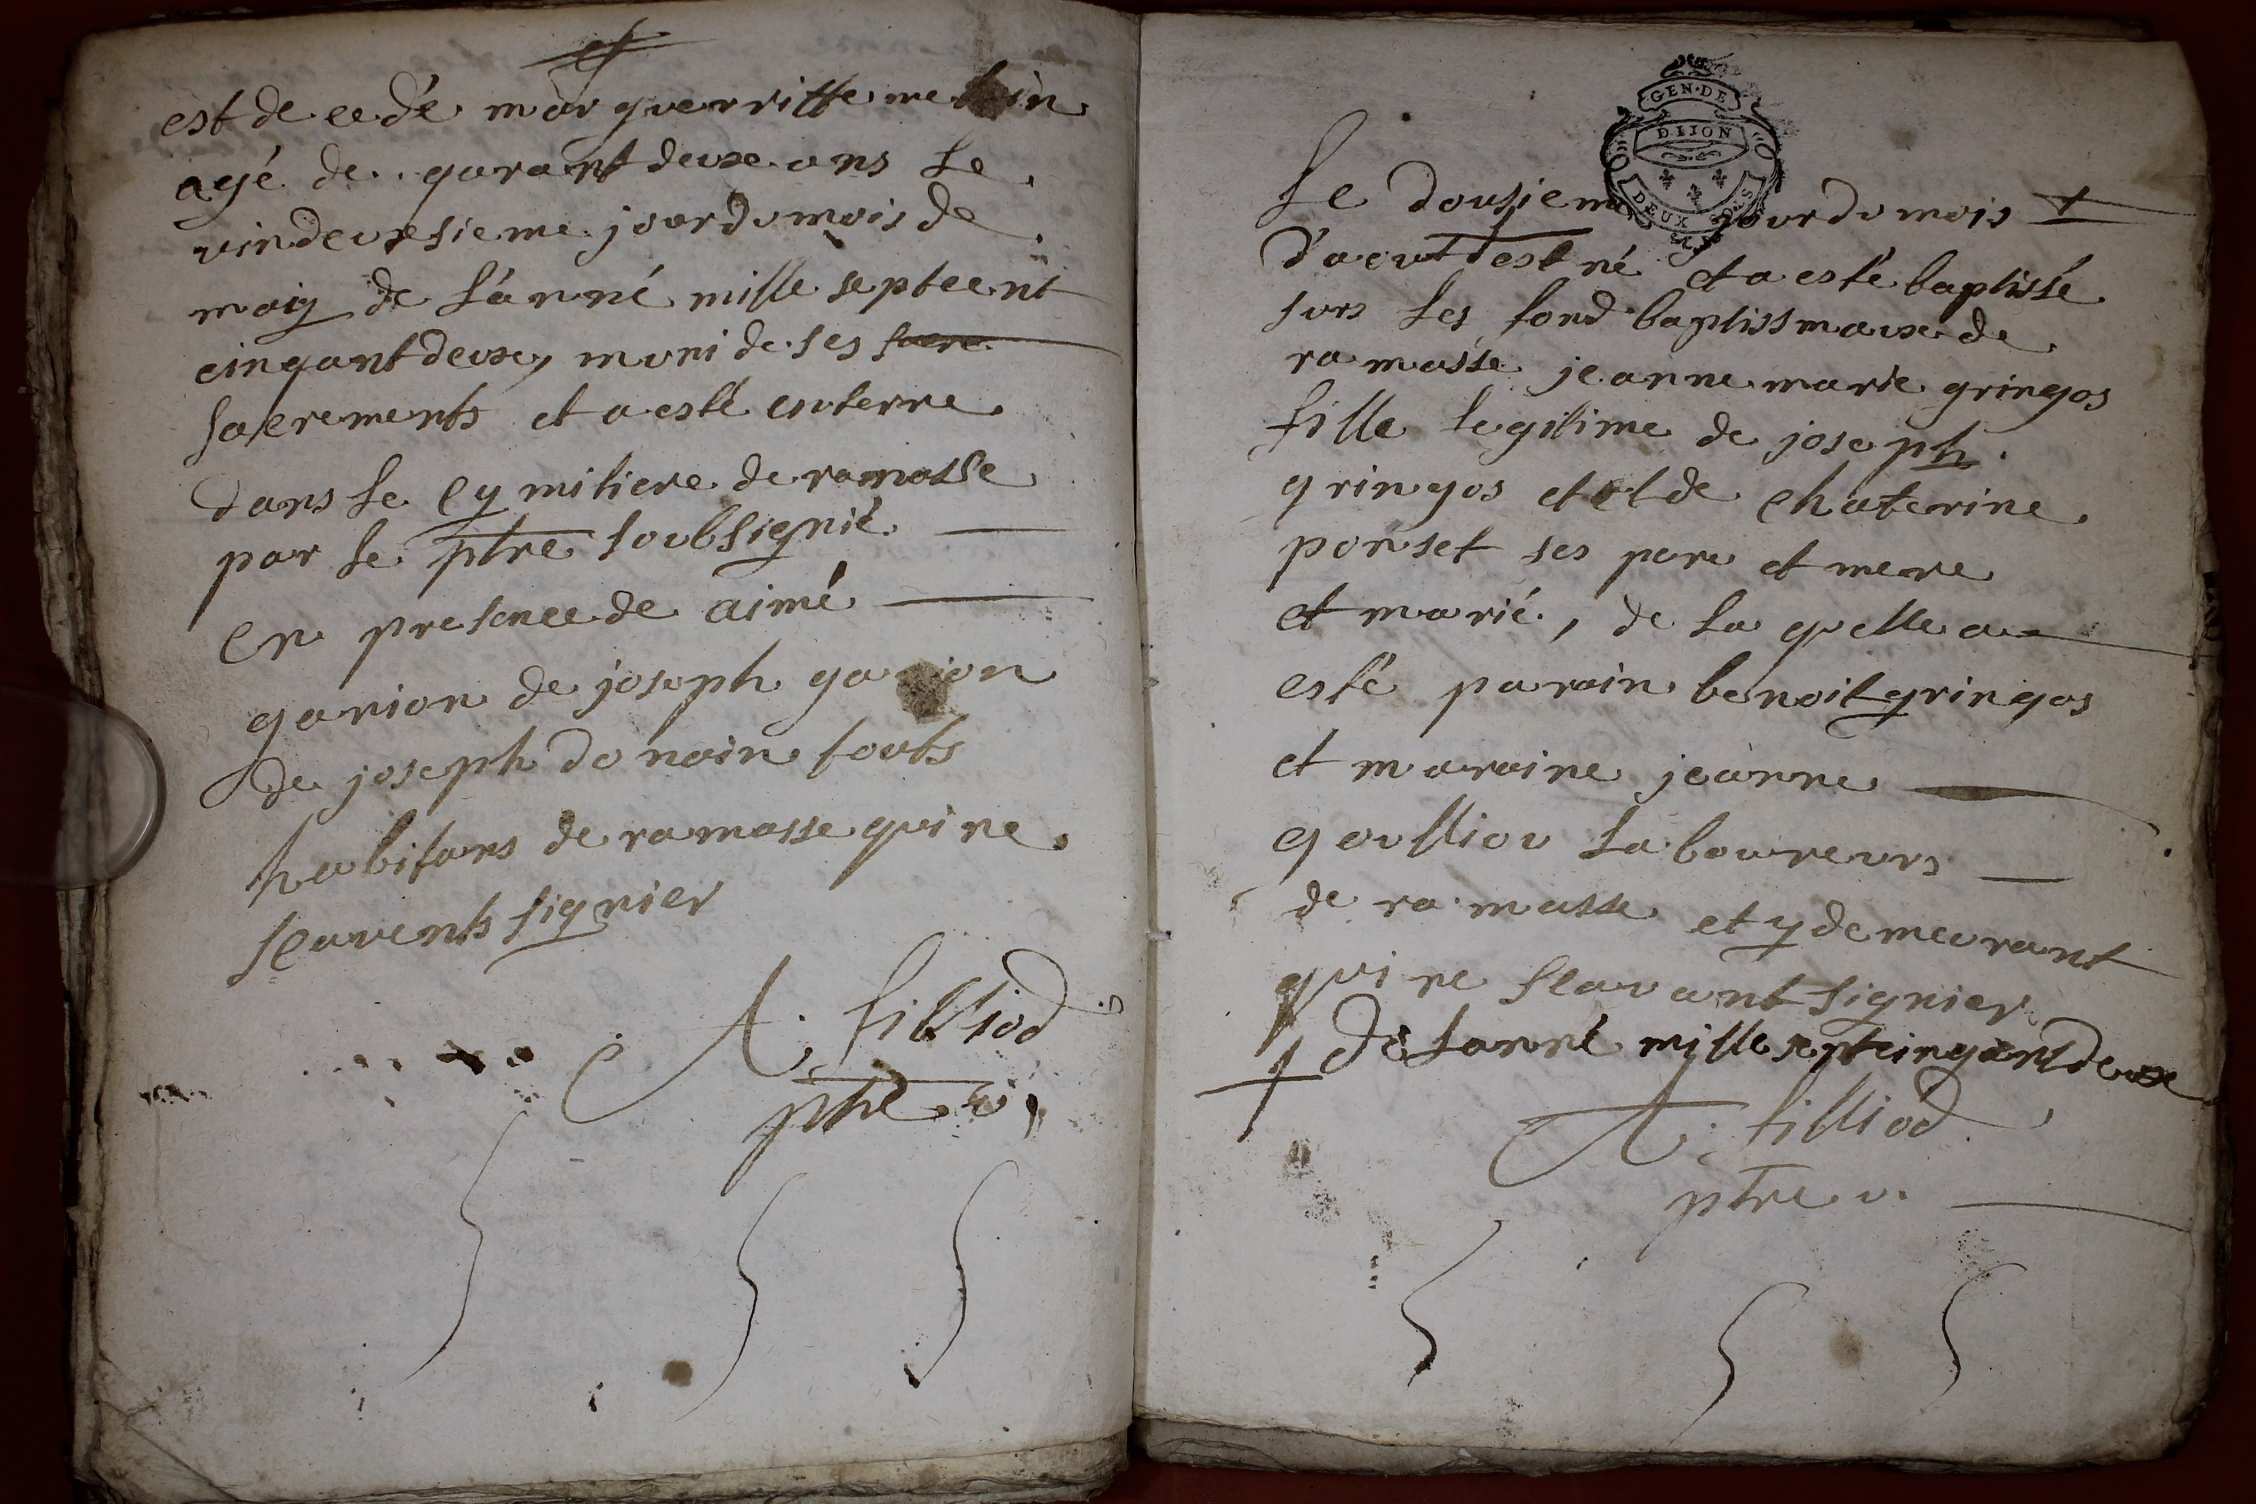 et
est decedé marguerritte me
agé de quarant deuxe ans le
vindeuxsieme jour du mois de
may de l'anné mille septcent
cinqant deuxe, muni de ses sacre
sacrements et a esté enterre
dans le cymitiere de ramasse
par le ptre soubsignié
en presence de aimé
garion de joseph garion
de joseph donain touts
habitans de ramasse qui ne
scavents signier
A. filliod
ptre v.
GEN · DE
DIJON
DEUX SOLS
le dousieme jour du mois +
d'aout est né et a esté baptissé
surs les fond baptissmauxe de
ramasse jeanne marie gringos
fille legitime de joseph
gringos et de chaterine
ponset ses pere et mere
et marié, de la quelle a
esté parain benoit gringos
et maraine jeanne
goulliou laboureurs
de ramasse et y demeurant
qui ne scavant signier
+ de lanné mille septcinqant deuxe
A. filliod
ptre v.